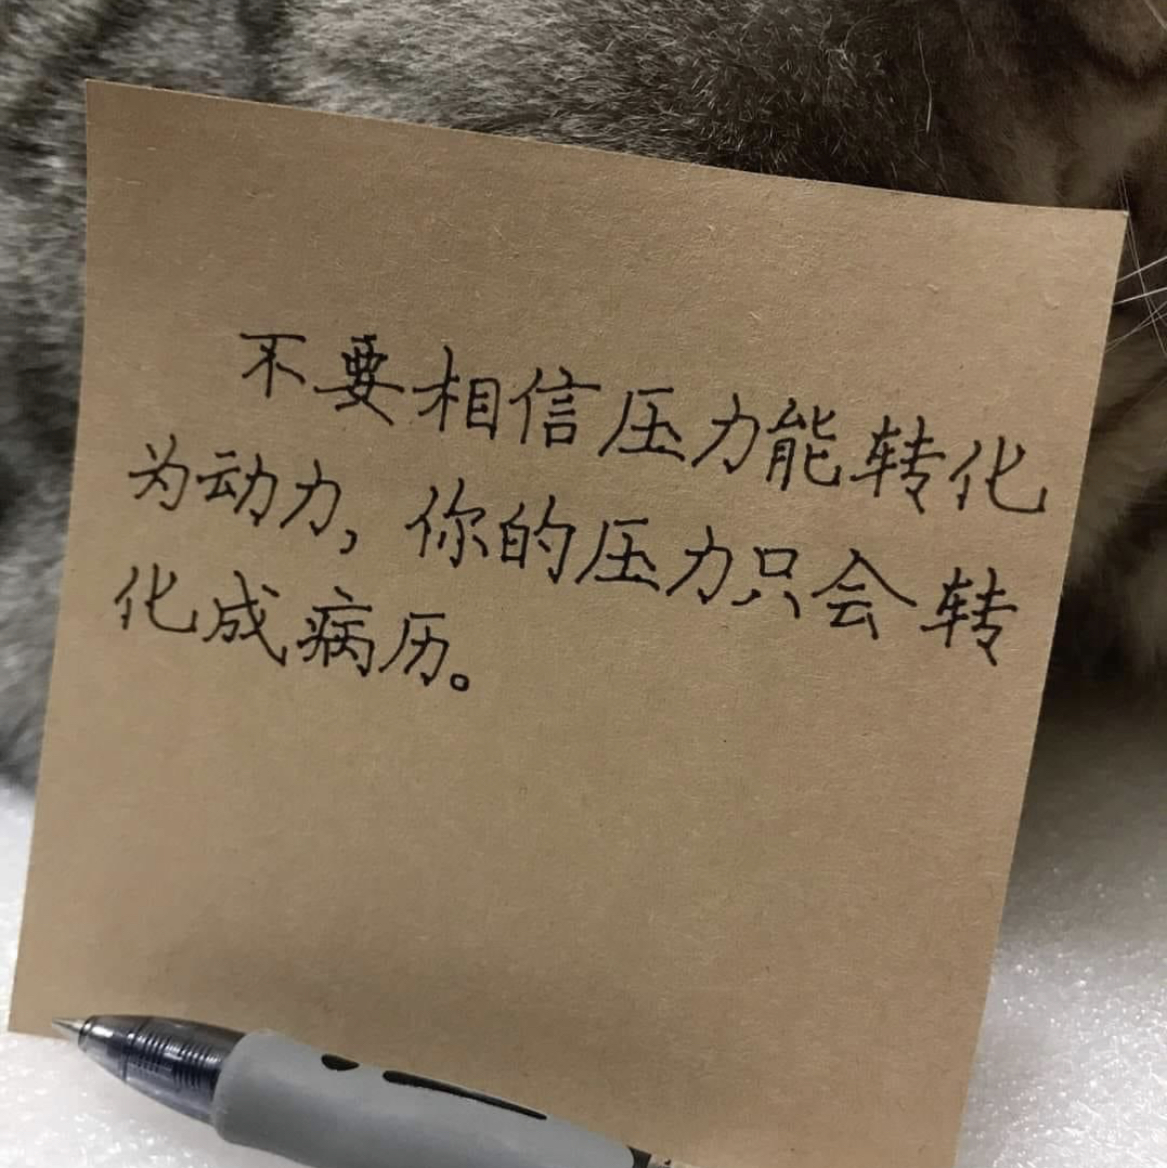 不要相信压力能转化
为动力，你的压力只会转
化成病历。